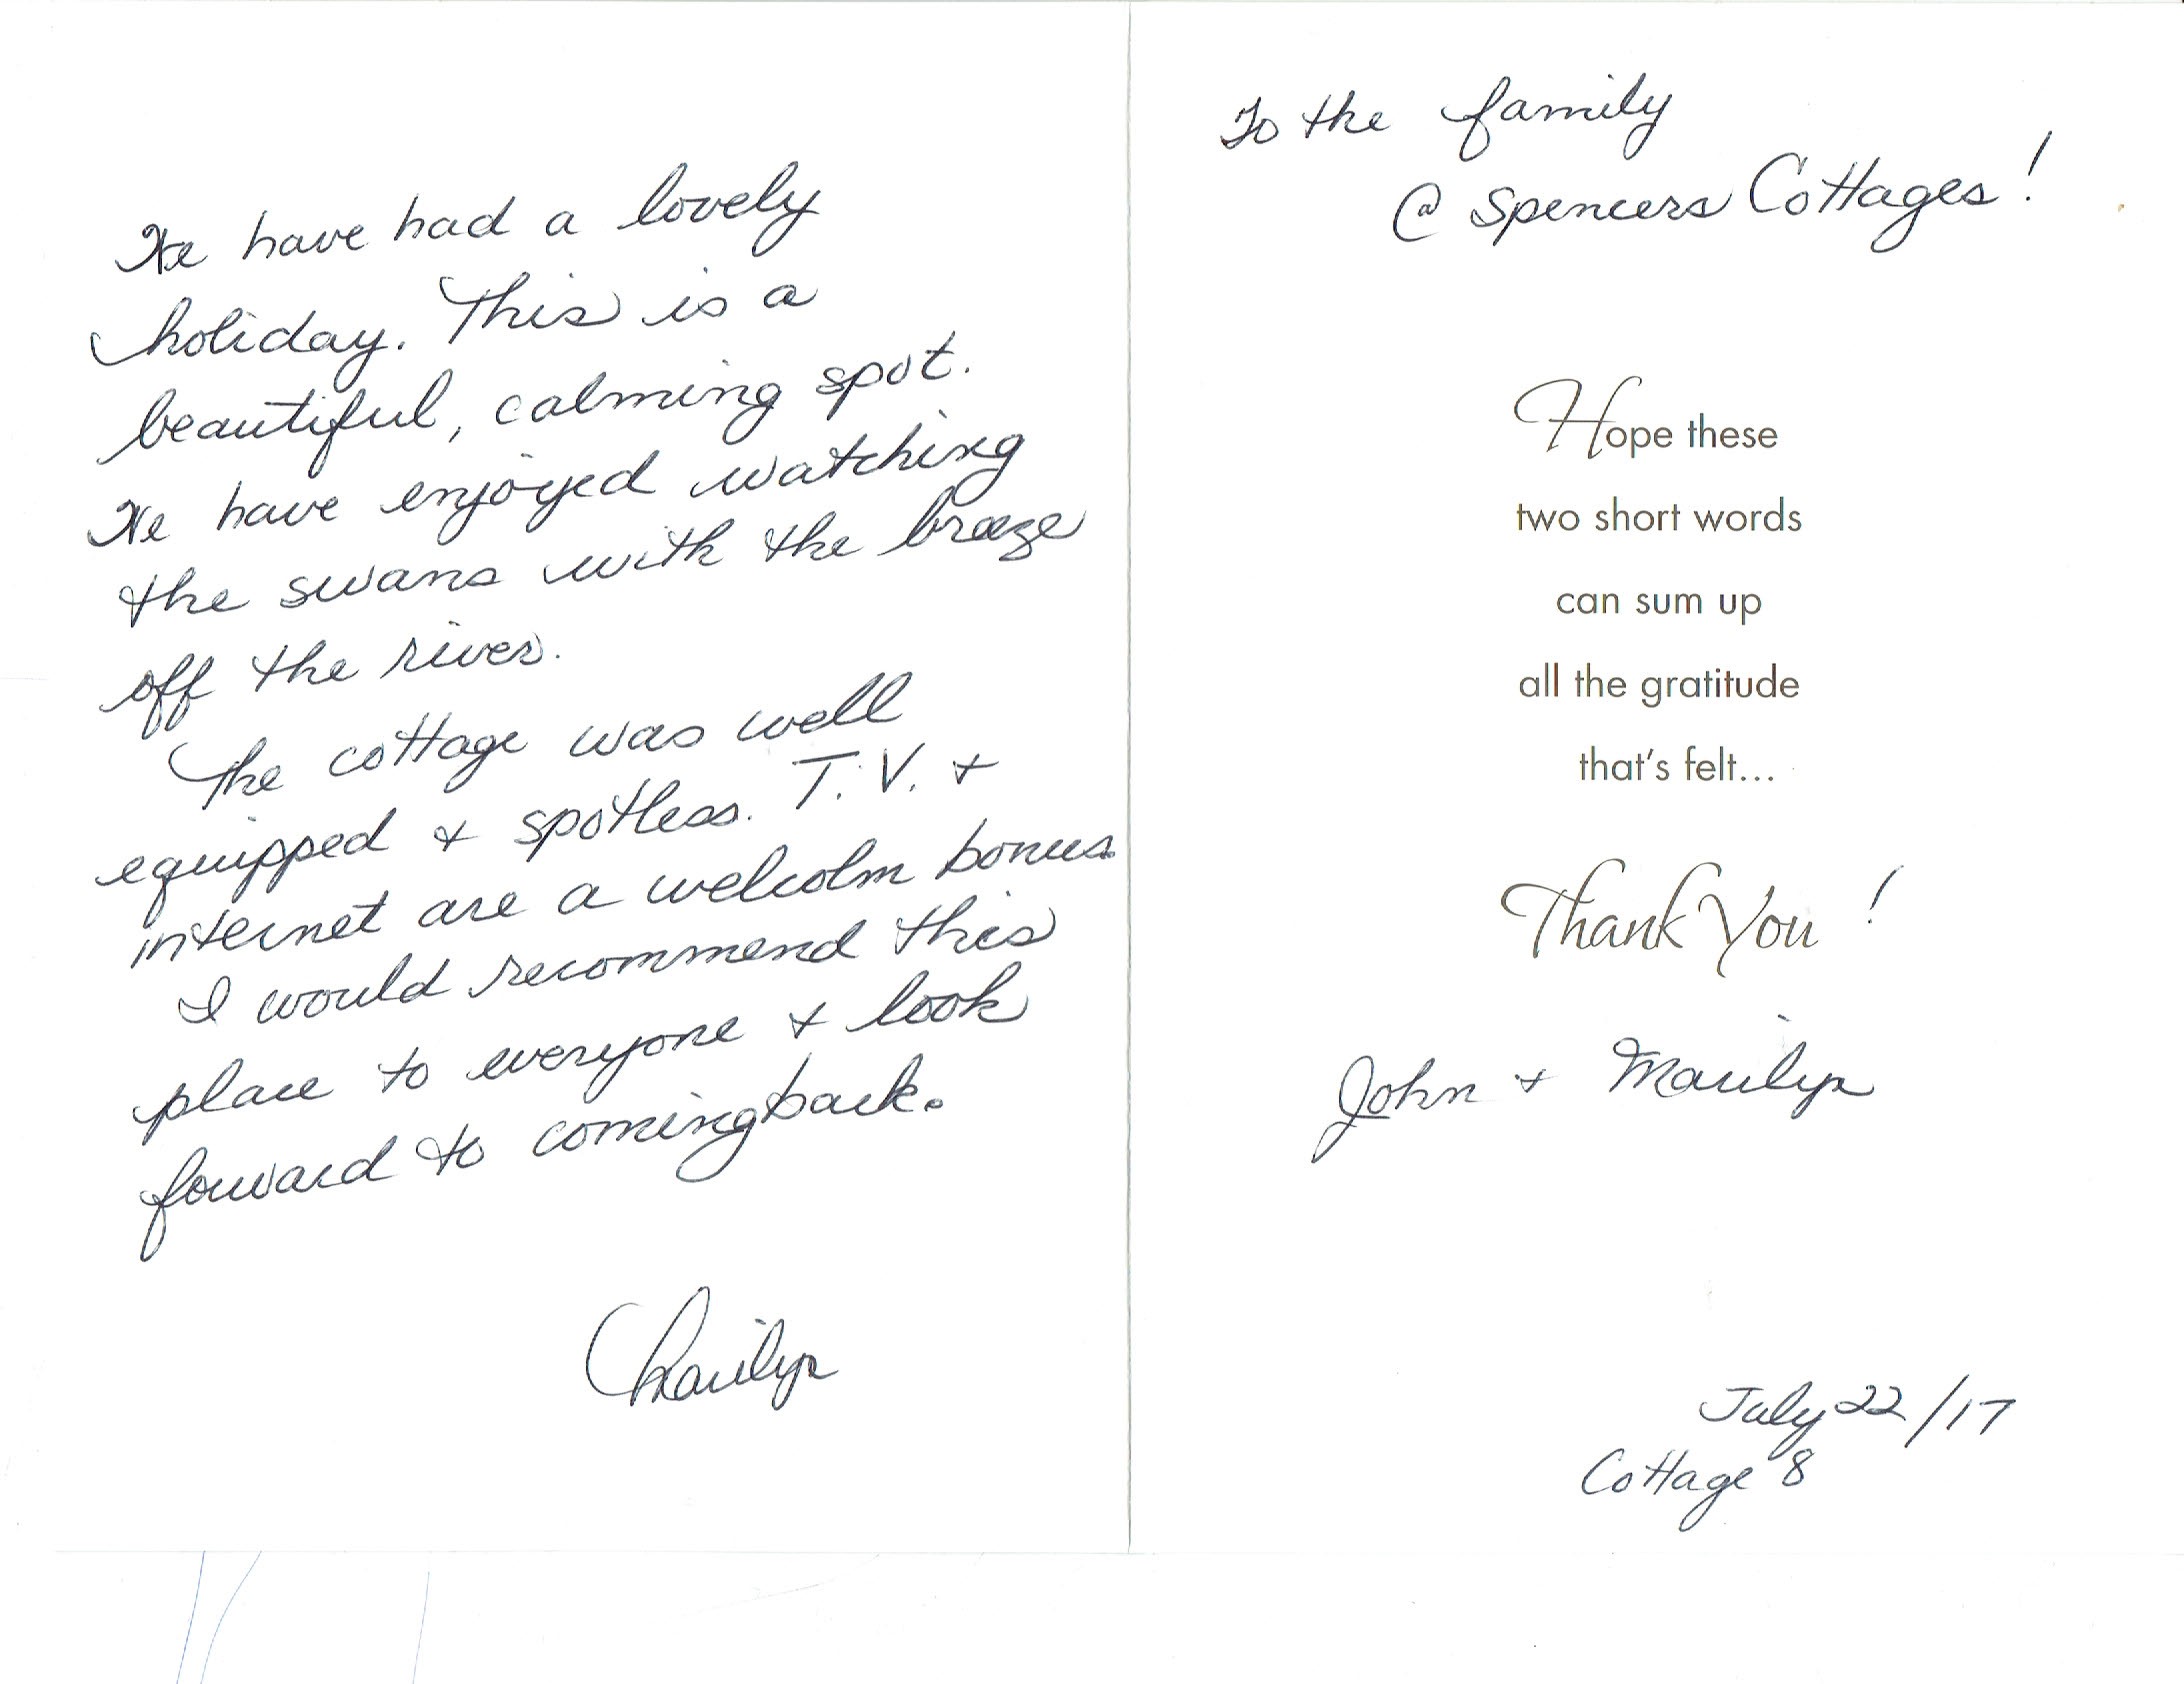 We have had a lovely
holiday. This is a
beautiful, calming spot.
We have enjoyed watching
the swans with the breeze
off the river.
The cottage was well
equipped + spotless. T.V. +
internet are a welcolm bonus.
I would recommend this
place to everyone + look
forward to coming back.
Marilyn
To the family
@ Spencers Cottages!
Hope these
two short words
can sum up
all the gratitude
that's felt...
Thank You !
John + Marilyn
July 22/17
Cottage 8